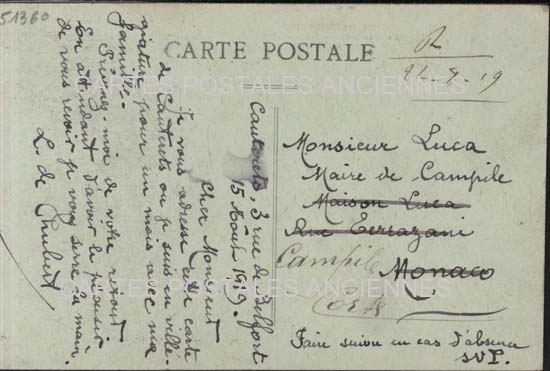 51360
CARTE POSTALE
R
21-8-19
CARTES POSTALES ANCIENNES
Cauterets, 3 rue de Belfort
15 Août 1919.
Cher Monsieur
je vous adresse cette carte
de Cauterets où je suis en villé-
giature pour un mois avec ma
famille.
Prévenez-moi de votre retour
En attendant d'avoir le plaisir
de vous revoir je vous serre la main.
L. de
Monsieur Luca
Maire de Campile
Maison Luca
Rue Terrazani
Campile
Monaco
Corse
Faire suivre en cas d'absence
SVP.